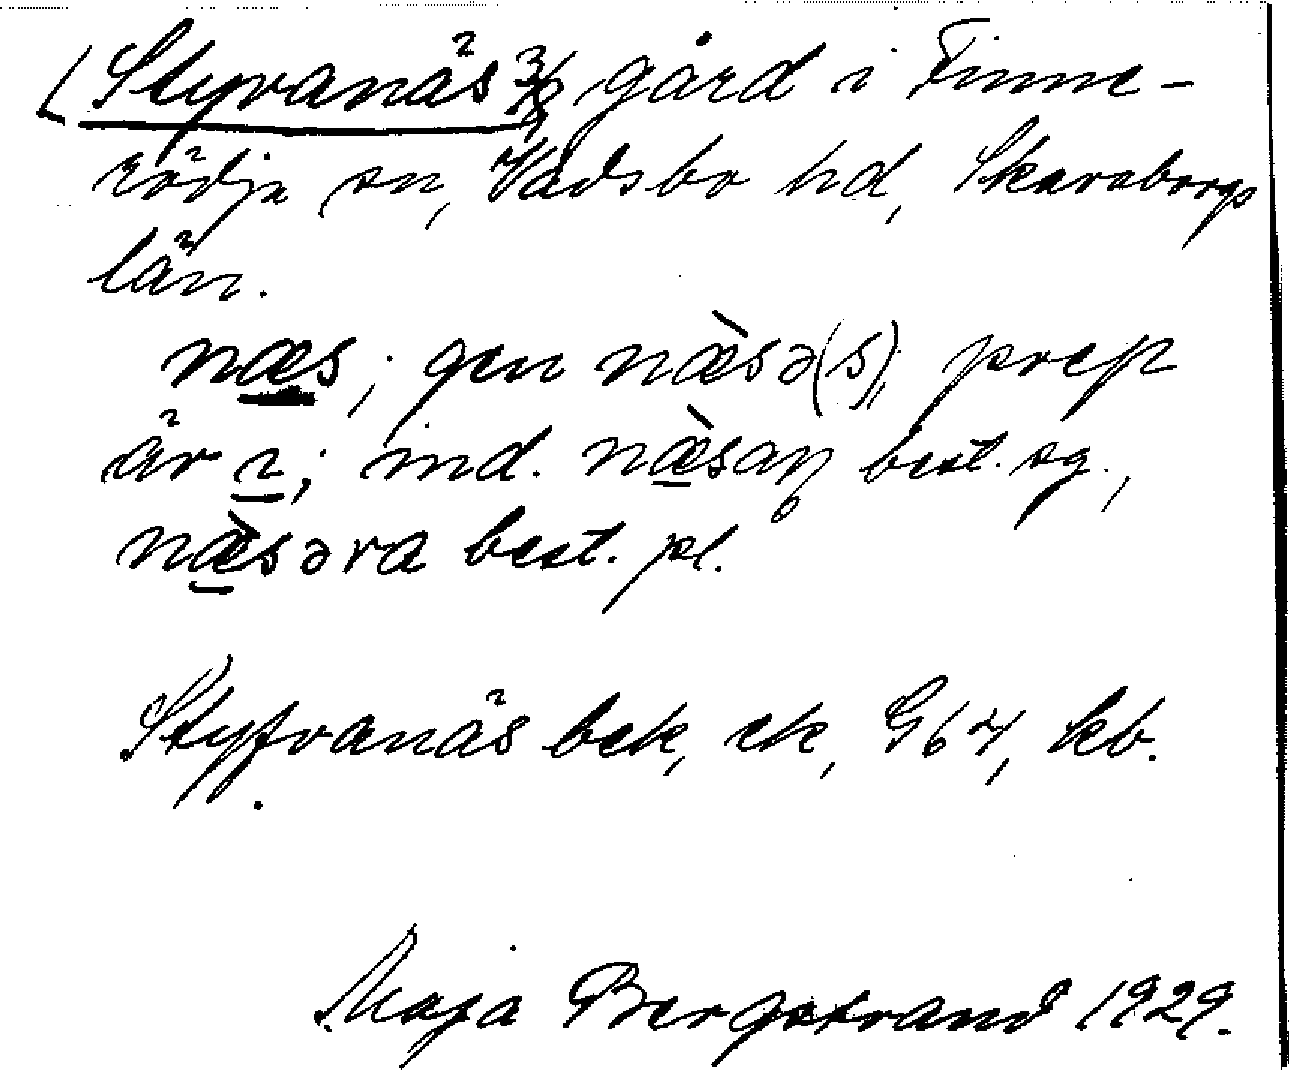 (Styvanäs 3/8 gård i Finne-
rödja sn, Vadsbo hd, Skaraborgs
län.
næs; gen næ̀sə(s), prep
är i; ind. næ̀saṇ best. sg.,
næ̀səra best. pl.
Styfvanäs bek, ek, G67, kb.
Maja Bergstrand 1929.